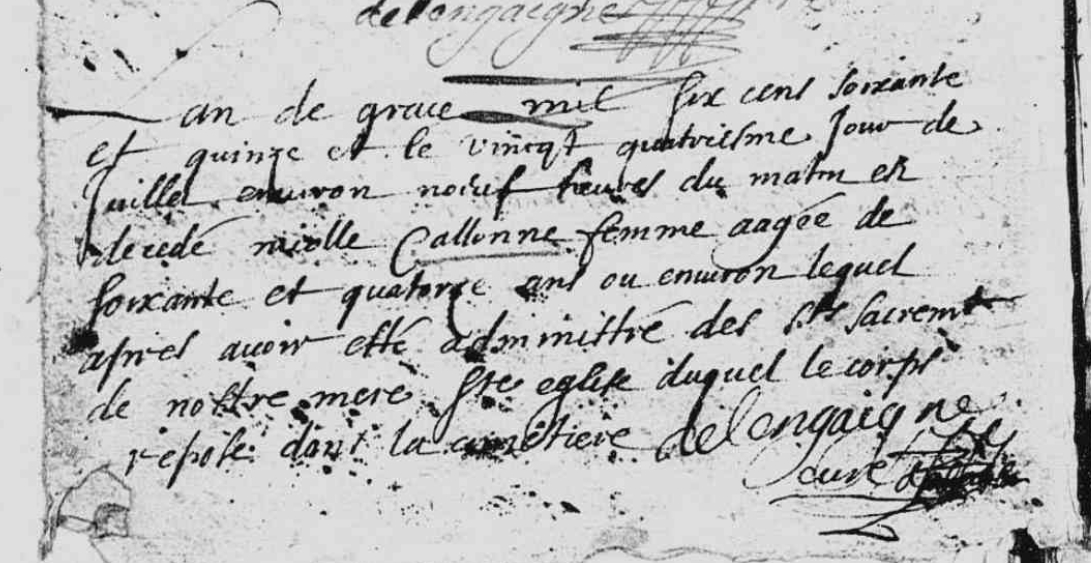 delengaigne
Lan de grace mil six cens soixante
et quinze et le vincqt quatriesme Jour de
Juillet environ noeuf heures du matin est
decedé nicolle Callonne femme aagée de
soixante et quatorze ans ou environ lequel
apres avoir esté administré des Sts sacremts
de nostre mere Ste eglise duquel le corps
repose dans la cimetiere delengaigne
curé